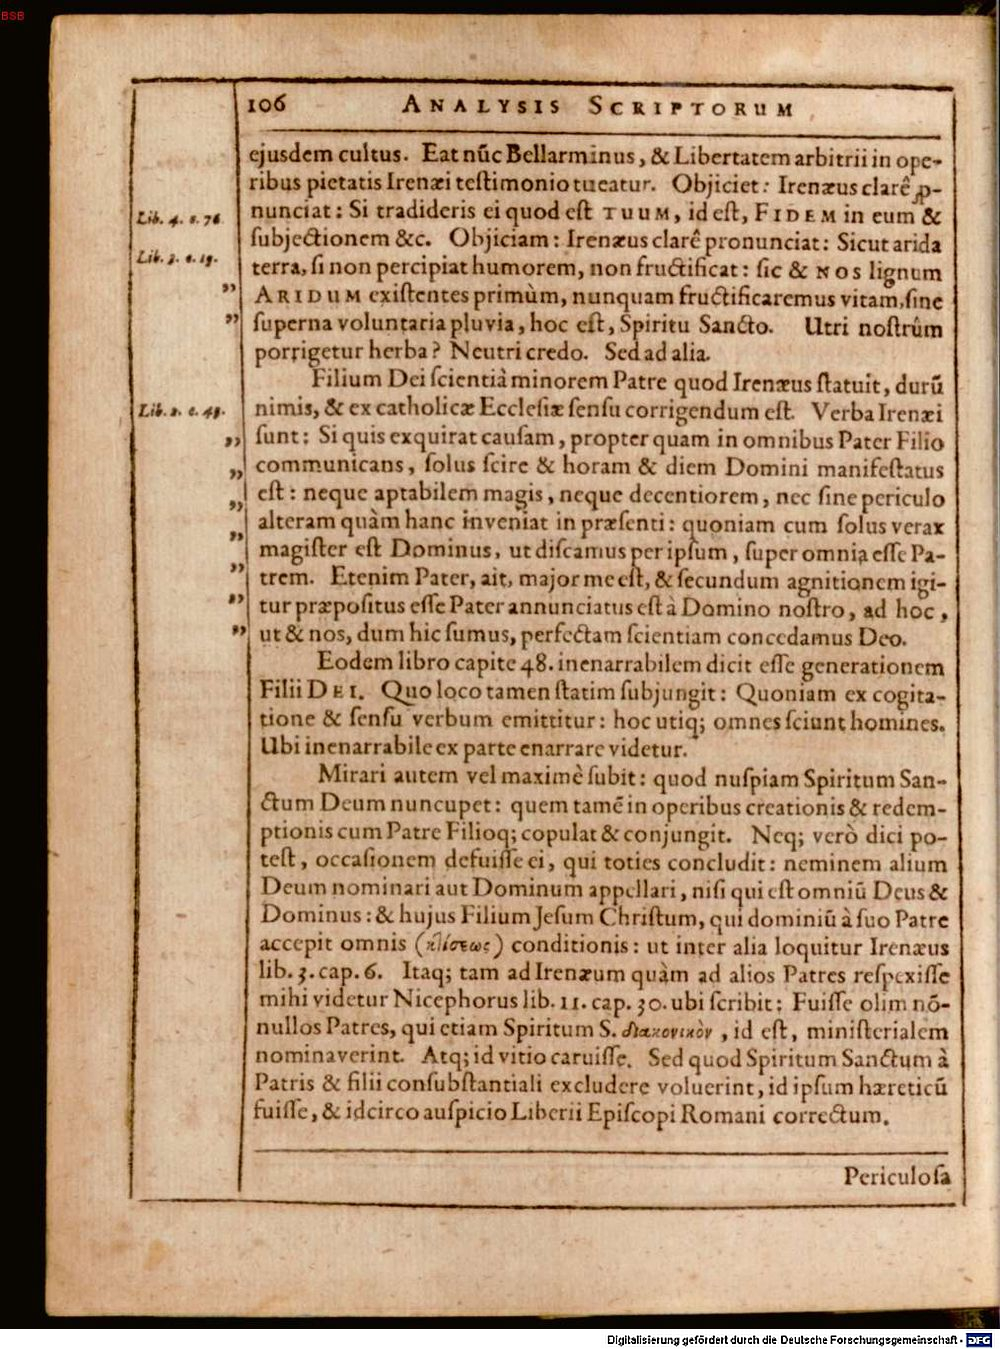 BSB
106 ANALYSIS SCRIPTORUM
ejusdem cultus. Eat nũc Bellarminus, & Libertatem arbitrii in ope-
ribus pietatis Irenæi testimonio tueatur. Objiciet: Irenæus clarê ꝓ-
Lib. 4. c. 76.
nunciat: Si tradideris ei quod est TUUM, id est, FIDEM in eum &
subjectionem &c. Objiciam: Irenæus clarê pronunciat: Sicut arida
Lib. 3. c. 19.
terra, si non percipiat humorem, non fructificat: sic & NOS lignum
” ARIDUM existentes primùm, nunquam fructificaremus vitam, sine
” superna voluntaria pluvia, hoc est, Spiritu Sancto. Utri nostrûm
porrigetur herba? Neutri credo. Sed ad alia.
Filium Dei scientiâ minorem Patre quod Irenæus statuit, durũ
Lib. 2. c. 49.
nimis, & ex catholicæ Ecclesiæ sensu corrigendum est. Verba Irenæi
” sunt: Si quis exquirat causam, propter quam in omnibus Pater Filio
” communicans, solus scire & horam & diem Domini manifestatus
” est: neque aptabilem magis, neque decentiorem, nec sine periculo
” alteram quàm hanc inveniat in præsenti: quoniam cum solus verax
magister est Dominus, ut discamus per ipsum, super omnia esse Pa-
” trem. Etenim Pater, ait, major me est, & secundum agnitionem igi-
” tur præpositus esse Pater annunciatus est à Domino nostro, ad hoc,
” ut & nos, dum hic sumus, perfectam scientiam concedamus Deo.
Eodem libro capite 48. inenarrabilem dicit esse generationem
Filii DEI. Quo loco tamen statim subjungit: Quoniam ex cogita-
tione & sensu verbum emittitur: hoc utiq; omnes sciunt homines.
Ubi inenarrabile ex parte enarrare videtur.
Mirari autem vel maximè subit: quod nuspiam Spiritum San-
ctum Deum nuncupet: quem tamẽ in operibus creationis & redem-
ptionis cum Patre Filioq; copulat & conjungit. Neq; verò dici po-
test, occasionem defuisse ei, qui toties concludit: neminem alium
Deum nominari aut Dominum appellari, nisi qui est omniũ Deus &
Dominus: & hujus Filium Jesum Christum, qui dominiũ à suo Patre
accepit omnis (κτίσεως) conditionis: ut inter alia loquitur Irenæus
lib. 3. cap. 6. Itaq; tam ad Irenæum quàm ad alios Patres respexisse
mihi videtur Nicephorus lib. 11. cap. 30. ubi scribit: Fuisse olim nõ-
nullos Patres, qui etiam Spiritum S. διακονικὸν, id est, ministerialem
nominaverint. Atq; id vitio caruisse. Sed quod Spiritum Sanctum à
Patris & filii consubstantiali excludere voluerint, id ipsum hæreticũ
fuisse, & idcirco auspicio Liberii Episcopi Romani correctum.
Periculosa
Digitalisierung gefördert durch die Deutsche Forschungsgemeinschaft - DFG